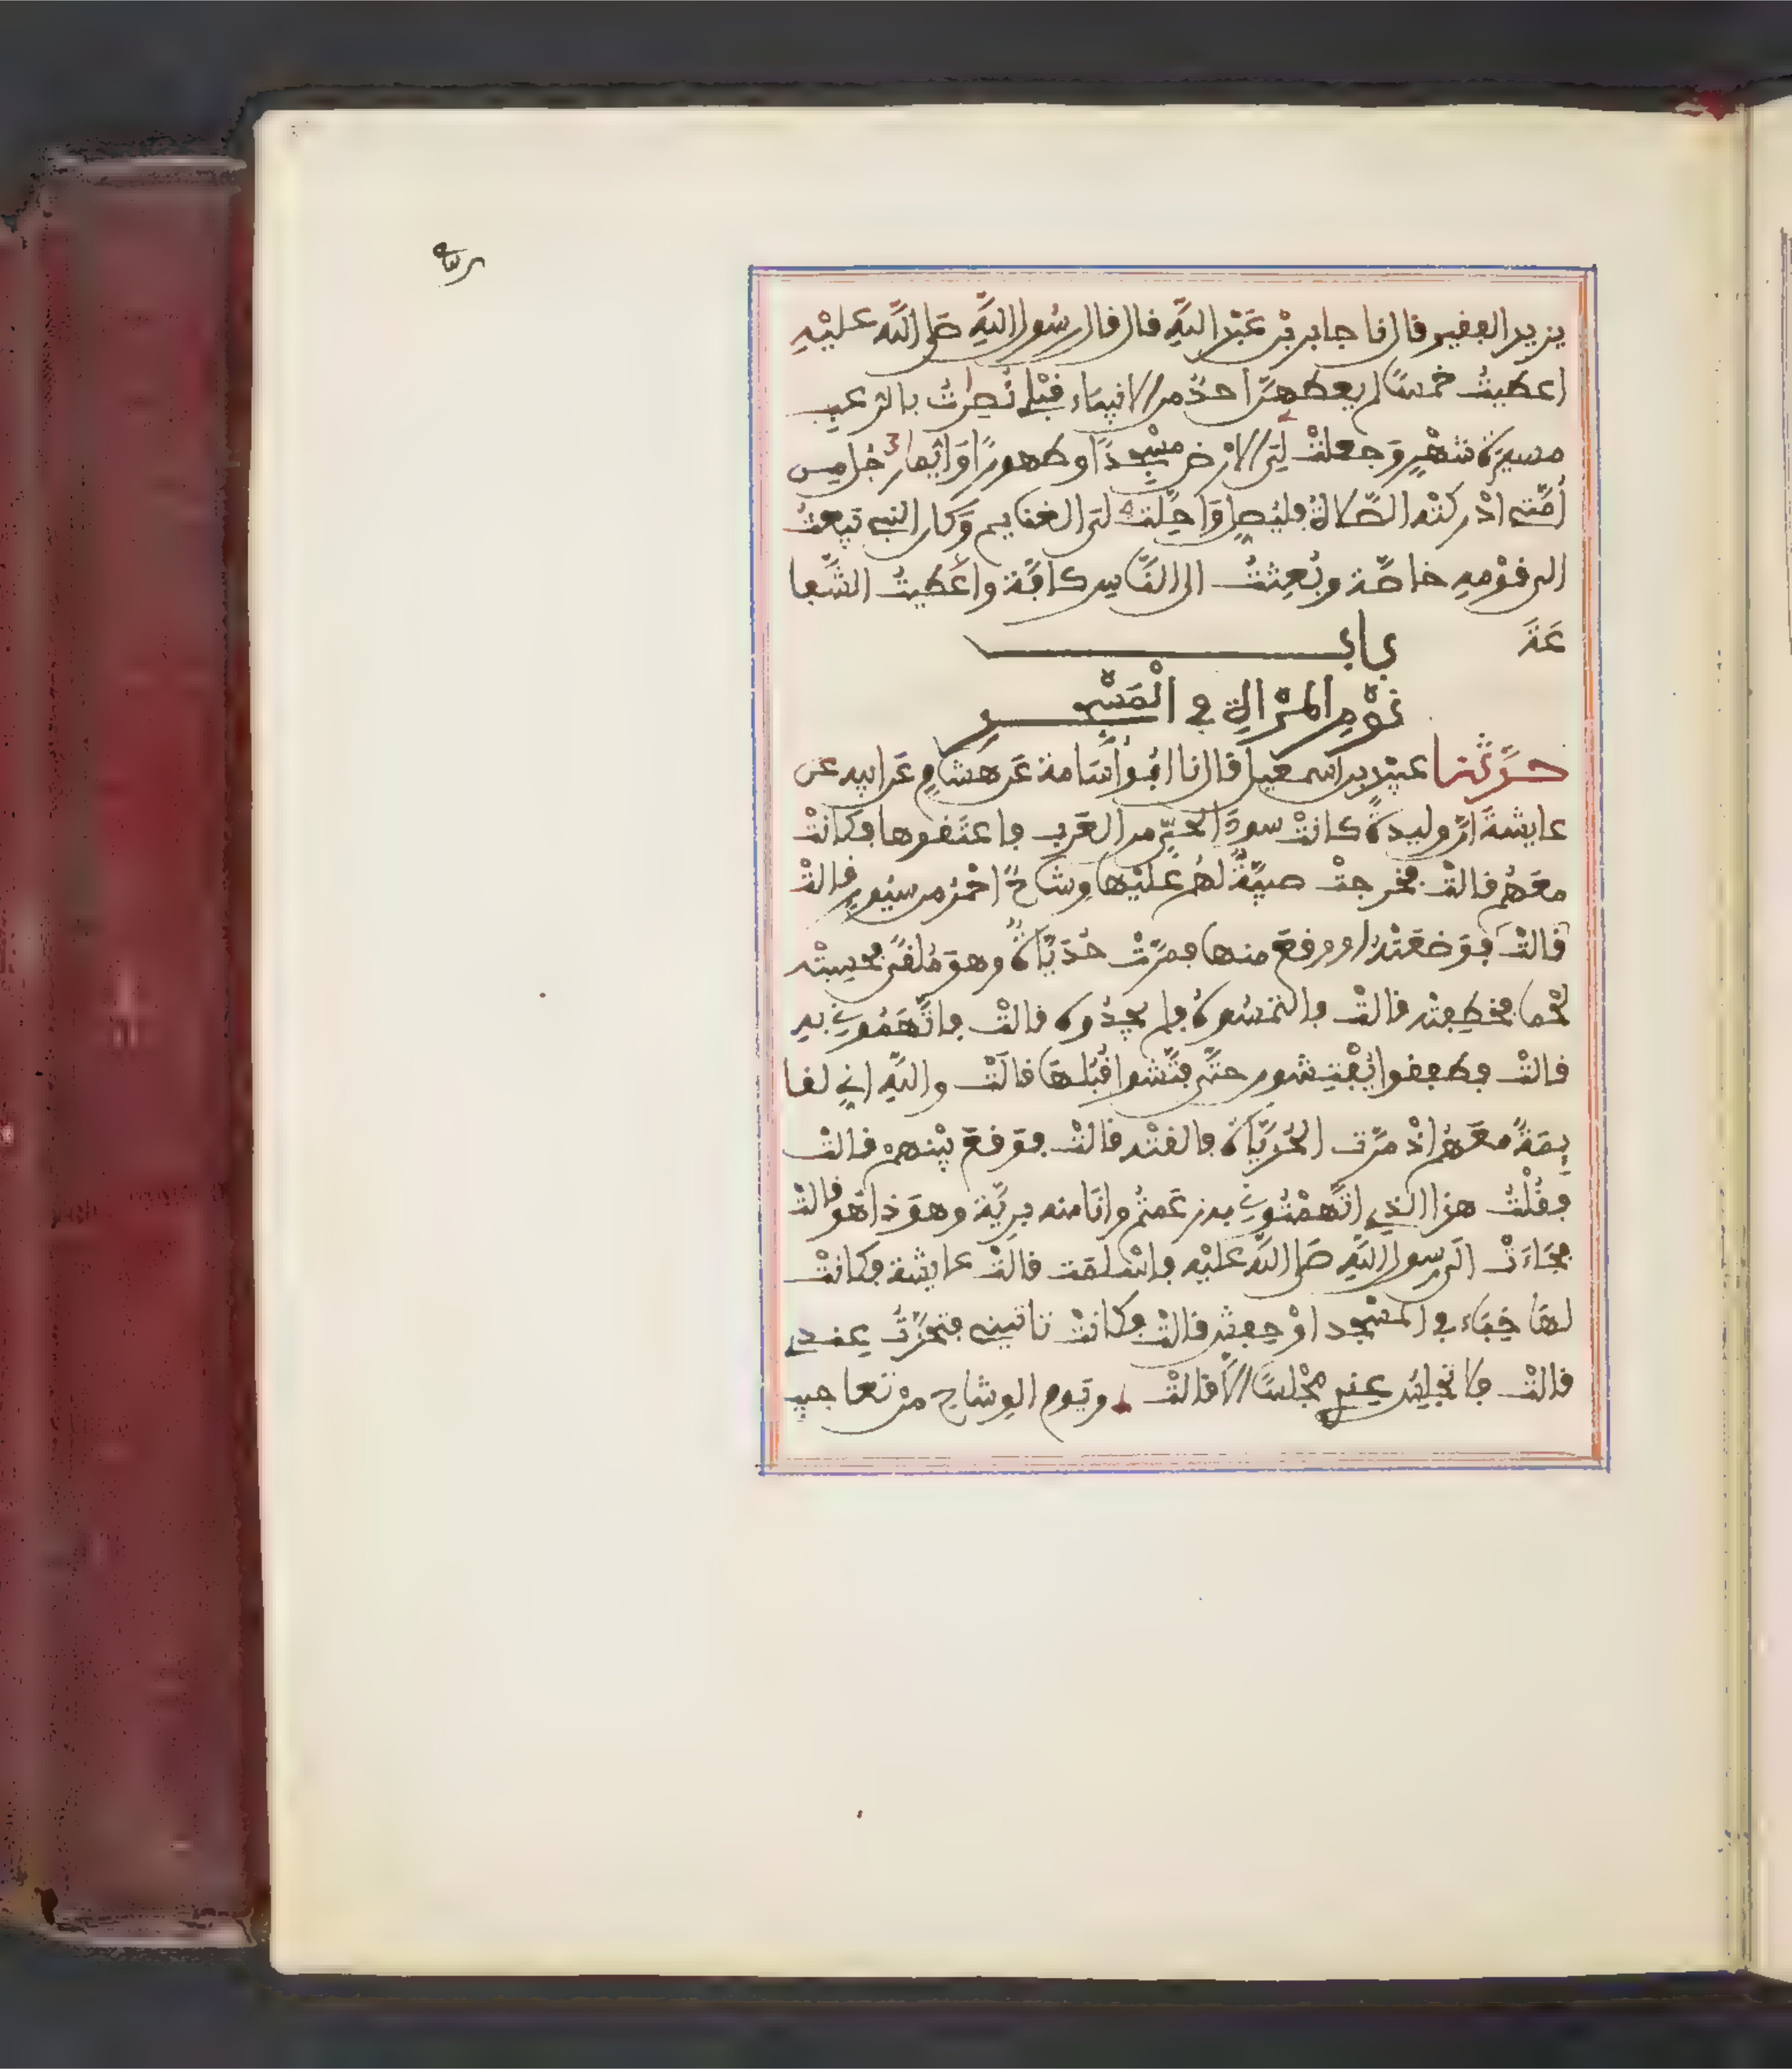 يزيد الفقير قال نا جابر بْن عَبْد اللهِ قال قال رسُول اللهِ صَلى اللهُ عليْهِ
اعطيتُ خمسًا لم يعطهنَّ احدٌ من الانبياء قبْلي نُصِرْتُ بالرعب
مسيرَةَ شهْرٍ وَجعلتْ لِيَ الارْض مسْجِدًا وطهورًا وَايّما رجُل من
أمّتي ادْركتْه الصّلاةُ فليُصل وَاحِلّتْ لِيَ الغنايم وَكان النبي يبعثُ
الى قوْمِهِ خاصّة وبُعِثتُ الى النَّاس كافّة واعْطيتُ الشّفا
عَةَ باب
نوْمِ المرْأةِ في الْمَسْجِد
حدّثنا عبَيْد بن اسمعيل قال نا ابُو أسَامة عَن هشَامٍ عَن ابيه عن
عايشةَ انّ وليدةً كانتْ سودَا لحَيٍّ من العَرب فاعتَقوها فكانتْ
معَهُم قالتْ فخرجتْ صبيّةٌ لهُم عَليْها وِشاحٌ احْمَرُ من سيُورٍ قالتْ
قالتْ فوَضعَتْهُ او وقعَ منها فمرّتْ حُدَيّاةٌ وهوَ مُلقًى فحسِبتْه
لحْما فخطِفتْه قالتْ فالتمسُوهُ فلم يجدُوه قالتْ فاتَّهَمُوني به
قالتْ فطفِقوا يُفتِّشون حتَّى فتّشوا قُبُلهَا قالَتْ واللهِ اني لقا
يِمَةٌ معَهُم اذْ مَرّت الحُدَيّاة فالقتْه قالتْ فوَقعَ بيْنهم قالتْ
فقُلْتُ هذا الذي اتّهمْتُموني به زعَمتُم وانَا منه بريّة وهوَ ذا هُو قالتْ
فجَاءَتْ الَى رسول اللهِ صَلى اللهُ عليْه فاسْلمَت قالتْ عايشة فكانتْ
لهَا خِبَاء في المسْجد اوْ حِفشٌ قالتْ فكانتْ تاتيني فتحَدَّثُ عندي
قالتْ فلا تجلِسُ عندي مجْلسًا الّا قالتْ ويَوم الوِشاحِ منْ تعاجيب